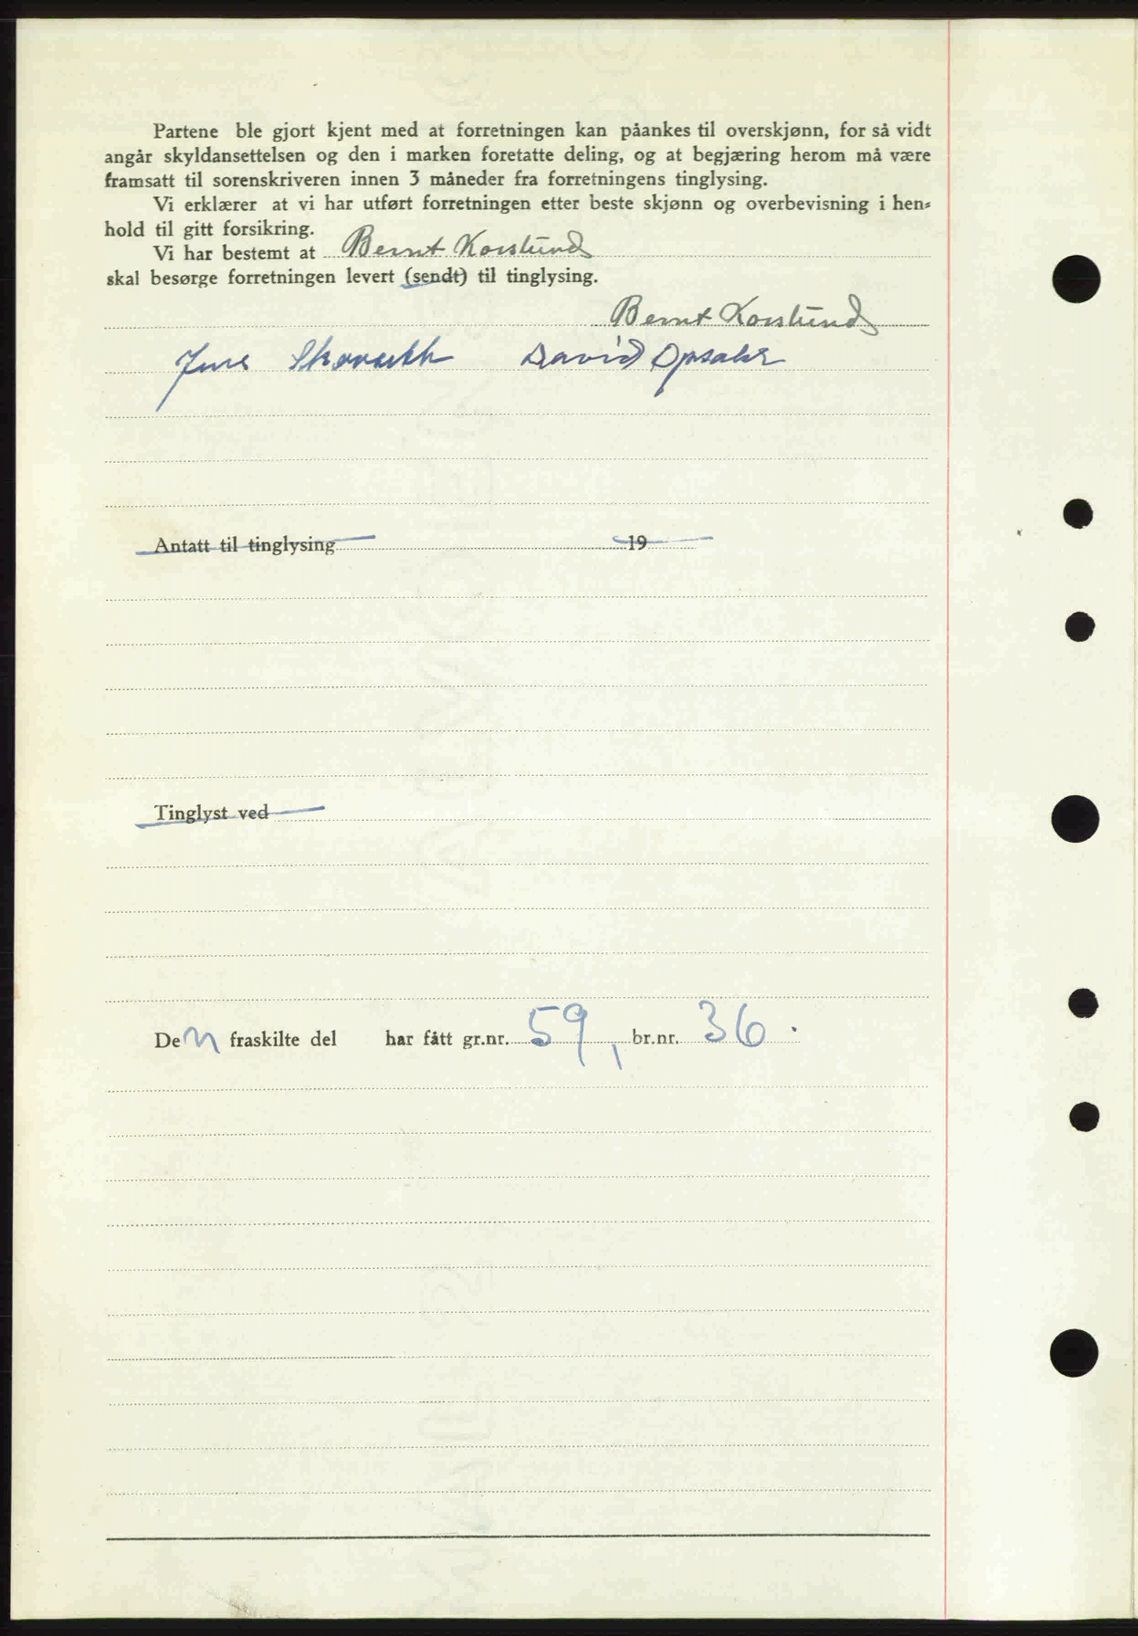 Partene ble gjort kjent med at forretningen kan påankes til overskjønn, for så vidt
angår skyldansettelsen og den i marken foretatte deling, og at begjæring herom må være
framsatt til sorenskriveren innen 3 måneder fra forretningens tinglysing.
Vi erklærer at vi har utført forretningen etter beste skjønn og overbevisning i hen-
hold til gitt forsikring.
Vi har bestemt at Bernt Korslund
skal besørge forretningen levert (sendt) til tinglysing.
Bernt Korslund
David Opsahl
Antatt til tinglysing 19
Tinglyst ved
Den fraskilte del har fått gr.nr. 59, br.nr. 36.